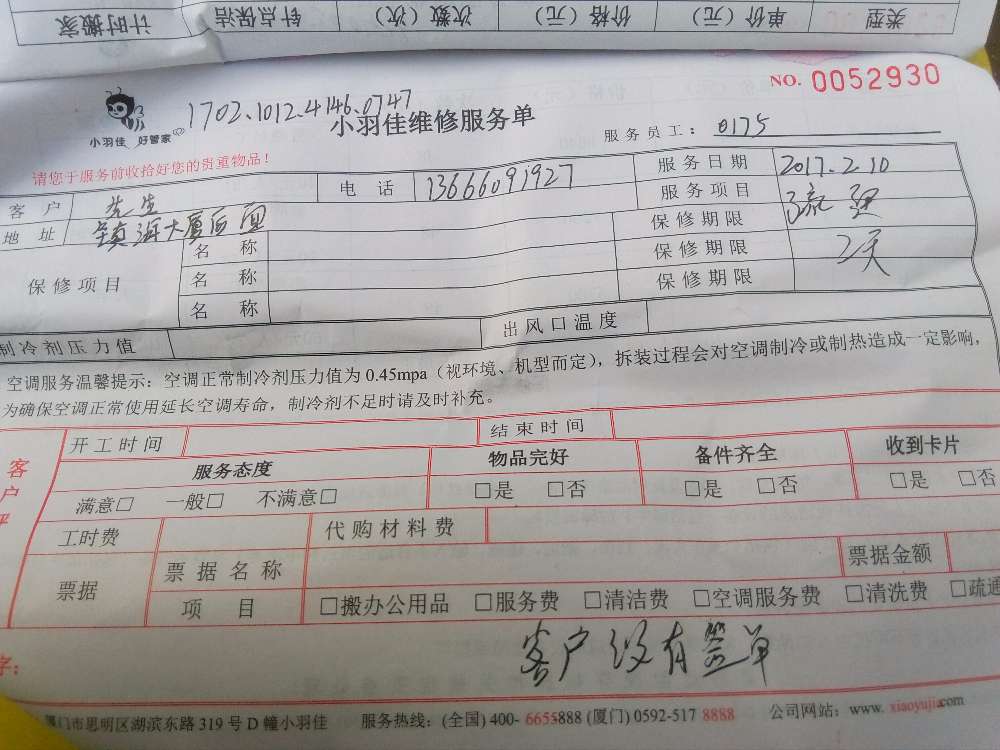 类型 单价（元） 价格（元） 次数（次） 针点保洁 计时搬家
NO. 0052930
1702.1012.4146.0747
小羽佳 好管家
小羽佳维修服务单
服务员工： 0175
请您于服务前收拾好您的贵重物品！
客户 先生 电话 13666091927 服务日期 2017.2.10
地址 镇海大厦后面 服务项目 疏
保修项目 名称 保修期限
名称 保修期限 2天
名称 保修期限
制冷剂压力值 出风口温度
空调服务温馨提示：空调正常制冷剂压力值为0.45mpa（视环境、机型而定），拆装过程会对空调制冷或制热造成一定影响，
为确保空调正常使用延长空调寿命，制冷剂不足时请及时补充。
开工时间 结束时间
客户评
服务态度 物品完好 备件齐全 收到卡片
满意□ 一般□ 不满意□ □是 □否 □是 □否 □是 □否
工时费 代购材料费
票据 票据名称 票据金额
项目 □搬办公用品 □服务费 □清洁费 □空调服务费 □清洗费 □疏通
字： 客户没有签单
厦门市思明区湖滨东路319号D幢小羽佳 服务热线：(全国) 400-6655888 (厦门) 0592-5178888 公司网站：www.xiaoyujia.com